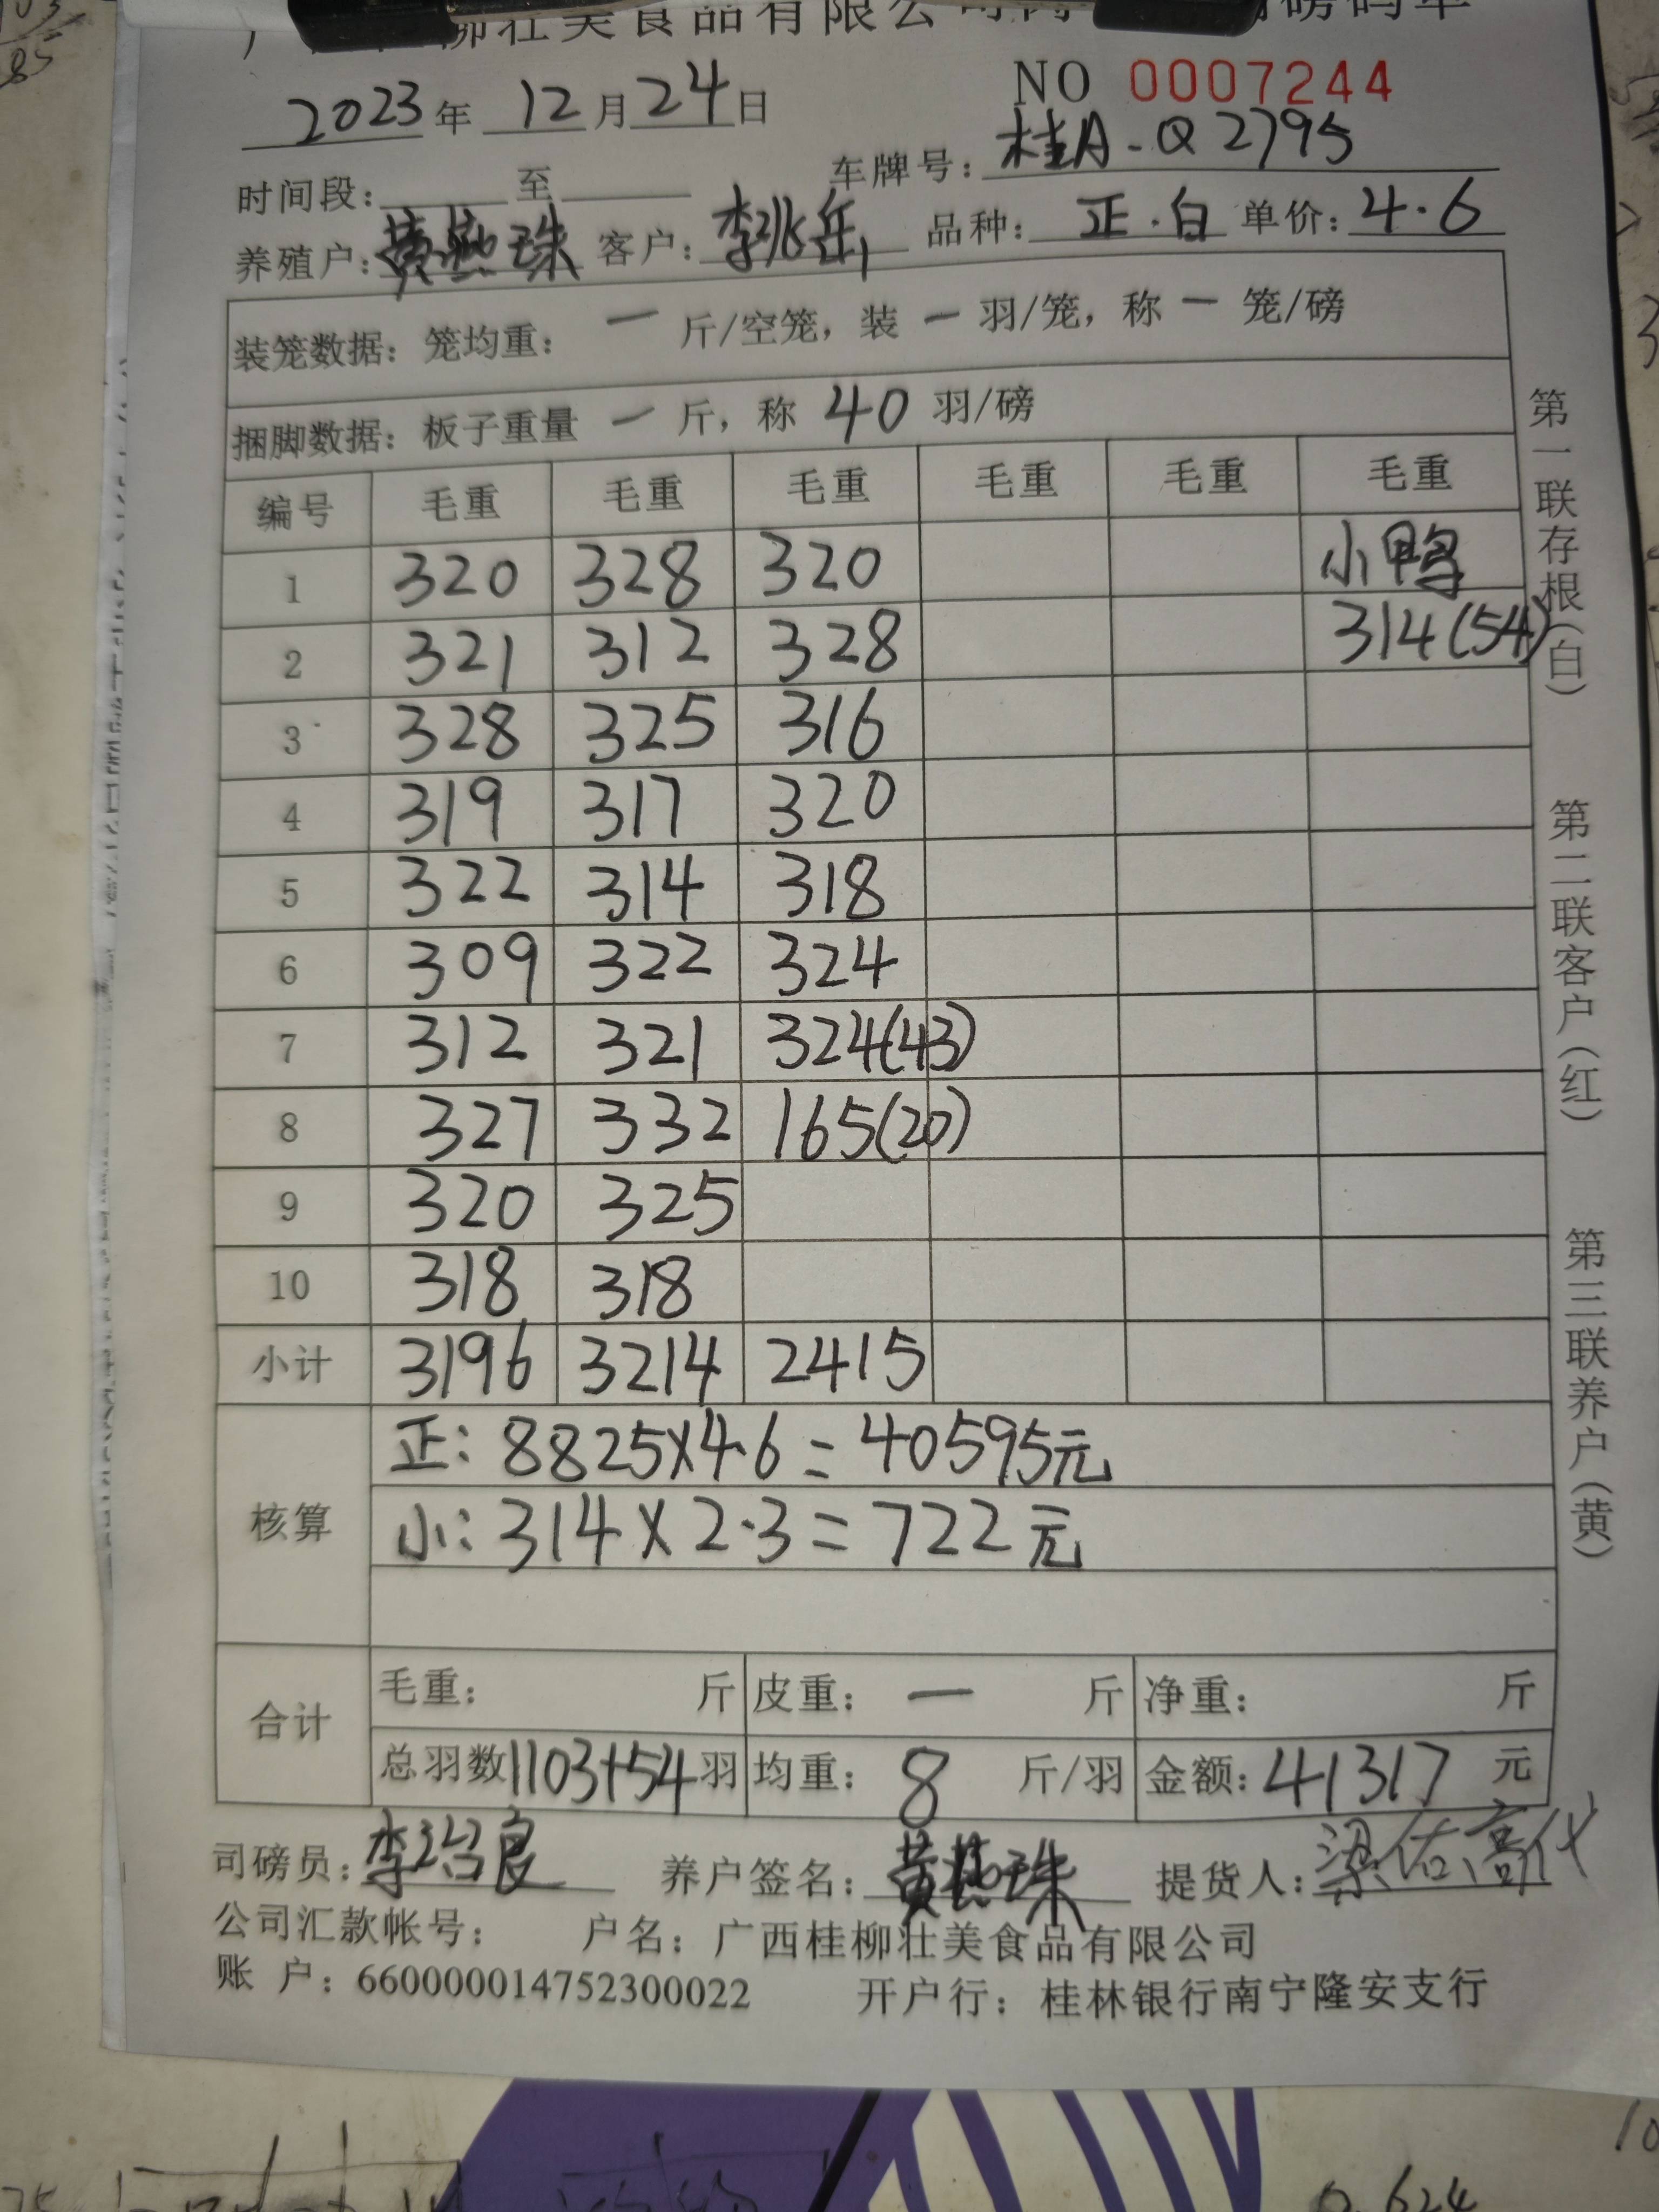 柳壮美食品有限公司
磅码单
NO 0007244
2023年 12月24日
时间段: 至 车牌号: 桂A-Q2795
养殖户: 黄燕珠 客户: 李兆岳 品种: 正.白 单价: 4.6
装笼数据: 笼均重: 一 斤/空笼, 装 一 羽/笼, 称 一 笼/磅
捆脚数据: 板子重量 一 斤, 称 40 羽/磅
编号 毛重 毛重 毛重 毛重 毛重 毛重
1 320 328 320 小鸭
2 321 312 328 314(54)
3 328 325 316
4 319 317 320
5 322 314 318
6 309 322 324
7 312 321 324(43)
8 327 332 165(20)
9 320 325
10 318 318
小计 3196 3214 2415
核算
正: 8825×4.6=40595元
小: 314×2.3=722元
合计
毛重: 斤 皮重: 一 斤 净重: 斤
总羽数1103+54羽 均重: 8 斤/羽 金额: 41317 元
司磅员: 李治良 养户签名: 黄燕珠 提货人: 梁佑高代
公司汇款帐号: 户名: 广西桂柳壮美食品有限公司
账 户: 660000014752300022 开户行: 桂林银行南宁隆安支行
第一联存根(白) 第二联客户(红) 第三联养户(黄)
0.624